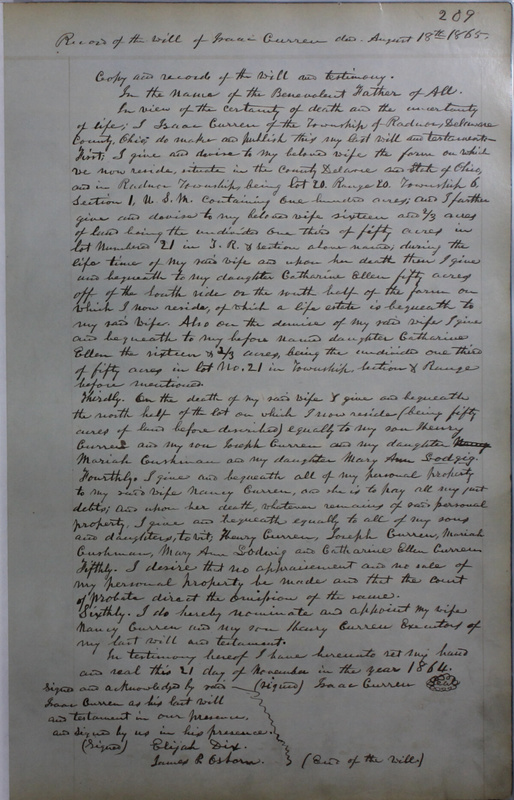 209
Record of the will of Isaac Curren dec. August 18th 1865.
Copy and records of the will and testimony.
In the Name of the Benevolent Father of All.
In view of the certainty of death and the uncertainty
of life; I Isaac Curren of the Township of Radnor, Delaware
County, Ohio, do make and publish this my last will and testament
First; I give and devise to my beloved wife the farm on which
we now reside, situate in the County Delaware and State of Ohio,
and in Radnor Township, being lot 20. Range 20. Township 6.
Section 1, U. S. M. Containing One hundred acres; and I further
give and devise to my beloved wife sixteen and 2/3 acres
of land being the undivided One third of fifty acres in
lot Numbered 21 in T. R. & section above named; during the
life time of my said wife and upon her death then I give
and bequeath to my daughter Catharine Ellen fifty acres
off of the South side or the south half of the farm on
which I now reside, of which a life estate is bequeath to
my said wife. Also on the demise of my said wife I give
and bequeath to my before named daughter Catharine
Ellen the sixteen & 2/3 acres, being the undivided one third
of fifty acres in lot No. 21 in Township Section & Range
before mentioned
Thirdly. On the death of my said wife I give and bequeath
the north half of the lot on which I now reside (being fifty
acres of land before described) equally to my son Henry
Curren and my son Joseph Curren and my daughter
Mariah Cushman and my daughter Mary Ann Lodgig.
Fourthly. I give and bequeath all of my personal property
to my said wife Nancy Curren, and she is to pay all my just
debts; and upon her death, whatever remains of said personal
property, I give and bequeath equally to all of my sons
and daughters, to wit; Henry Curren, Joseph Curren, Mariah
Cushman, Mary Ann Lodwig and Catharine Ellen Curren
Fifthly. I desire that no appraisement and no sale of
my personal property be made and that the court
of Probate direct the Omission of the same.
Sixthly. I do hereby nominate and appoint my wife
Nancy Curren and my son Henry Curren Executors of
my last will and testament.
In testimony hereof I have hereunto set my hand
and seal this 21 day of November in the year 1864.
Signed and acknowledged by said (signed) Isaac Curren
Isaac Curren as his last will
and testament in our presence,
and signed by us in his presence.
(Signed) Elijah Dix.
James P. Osborn. (End of the will)